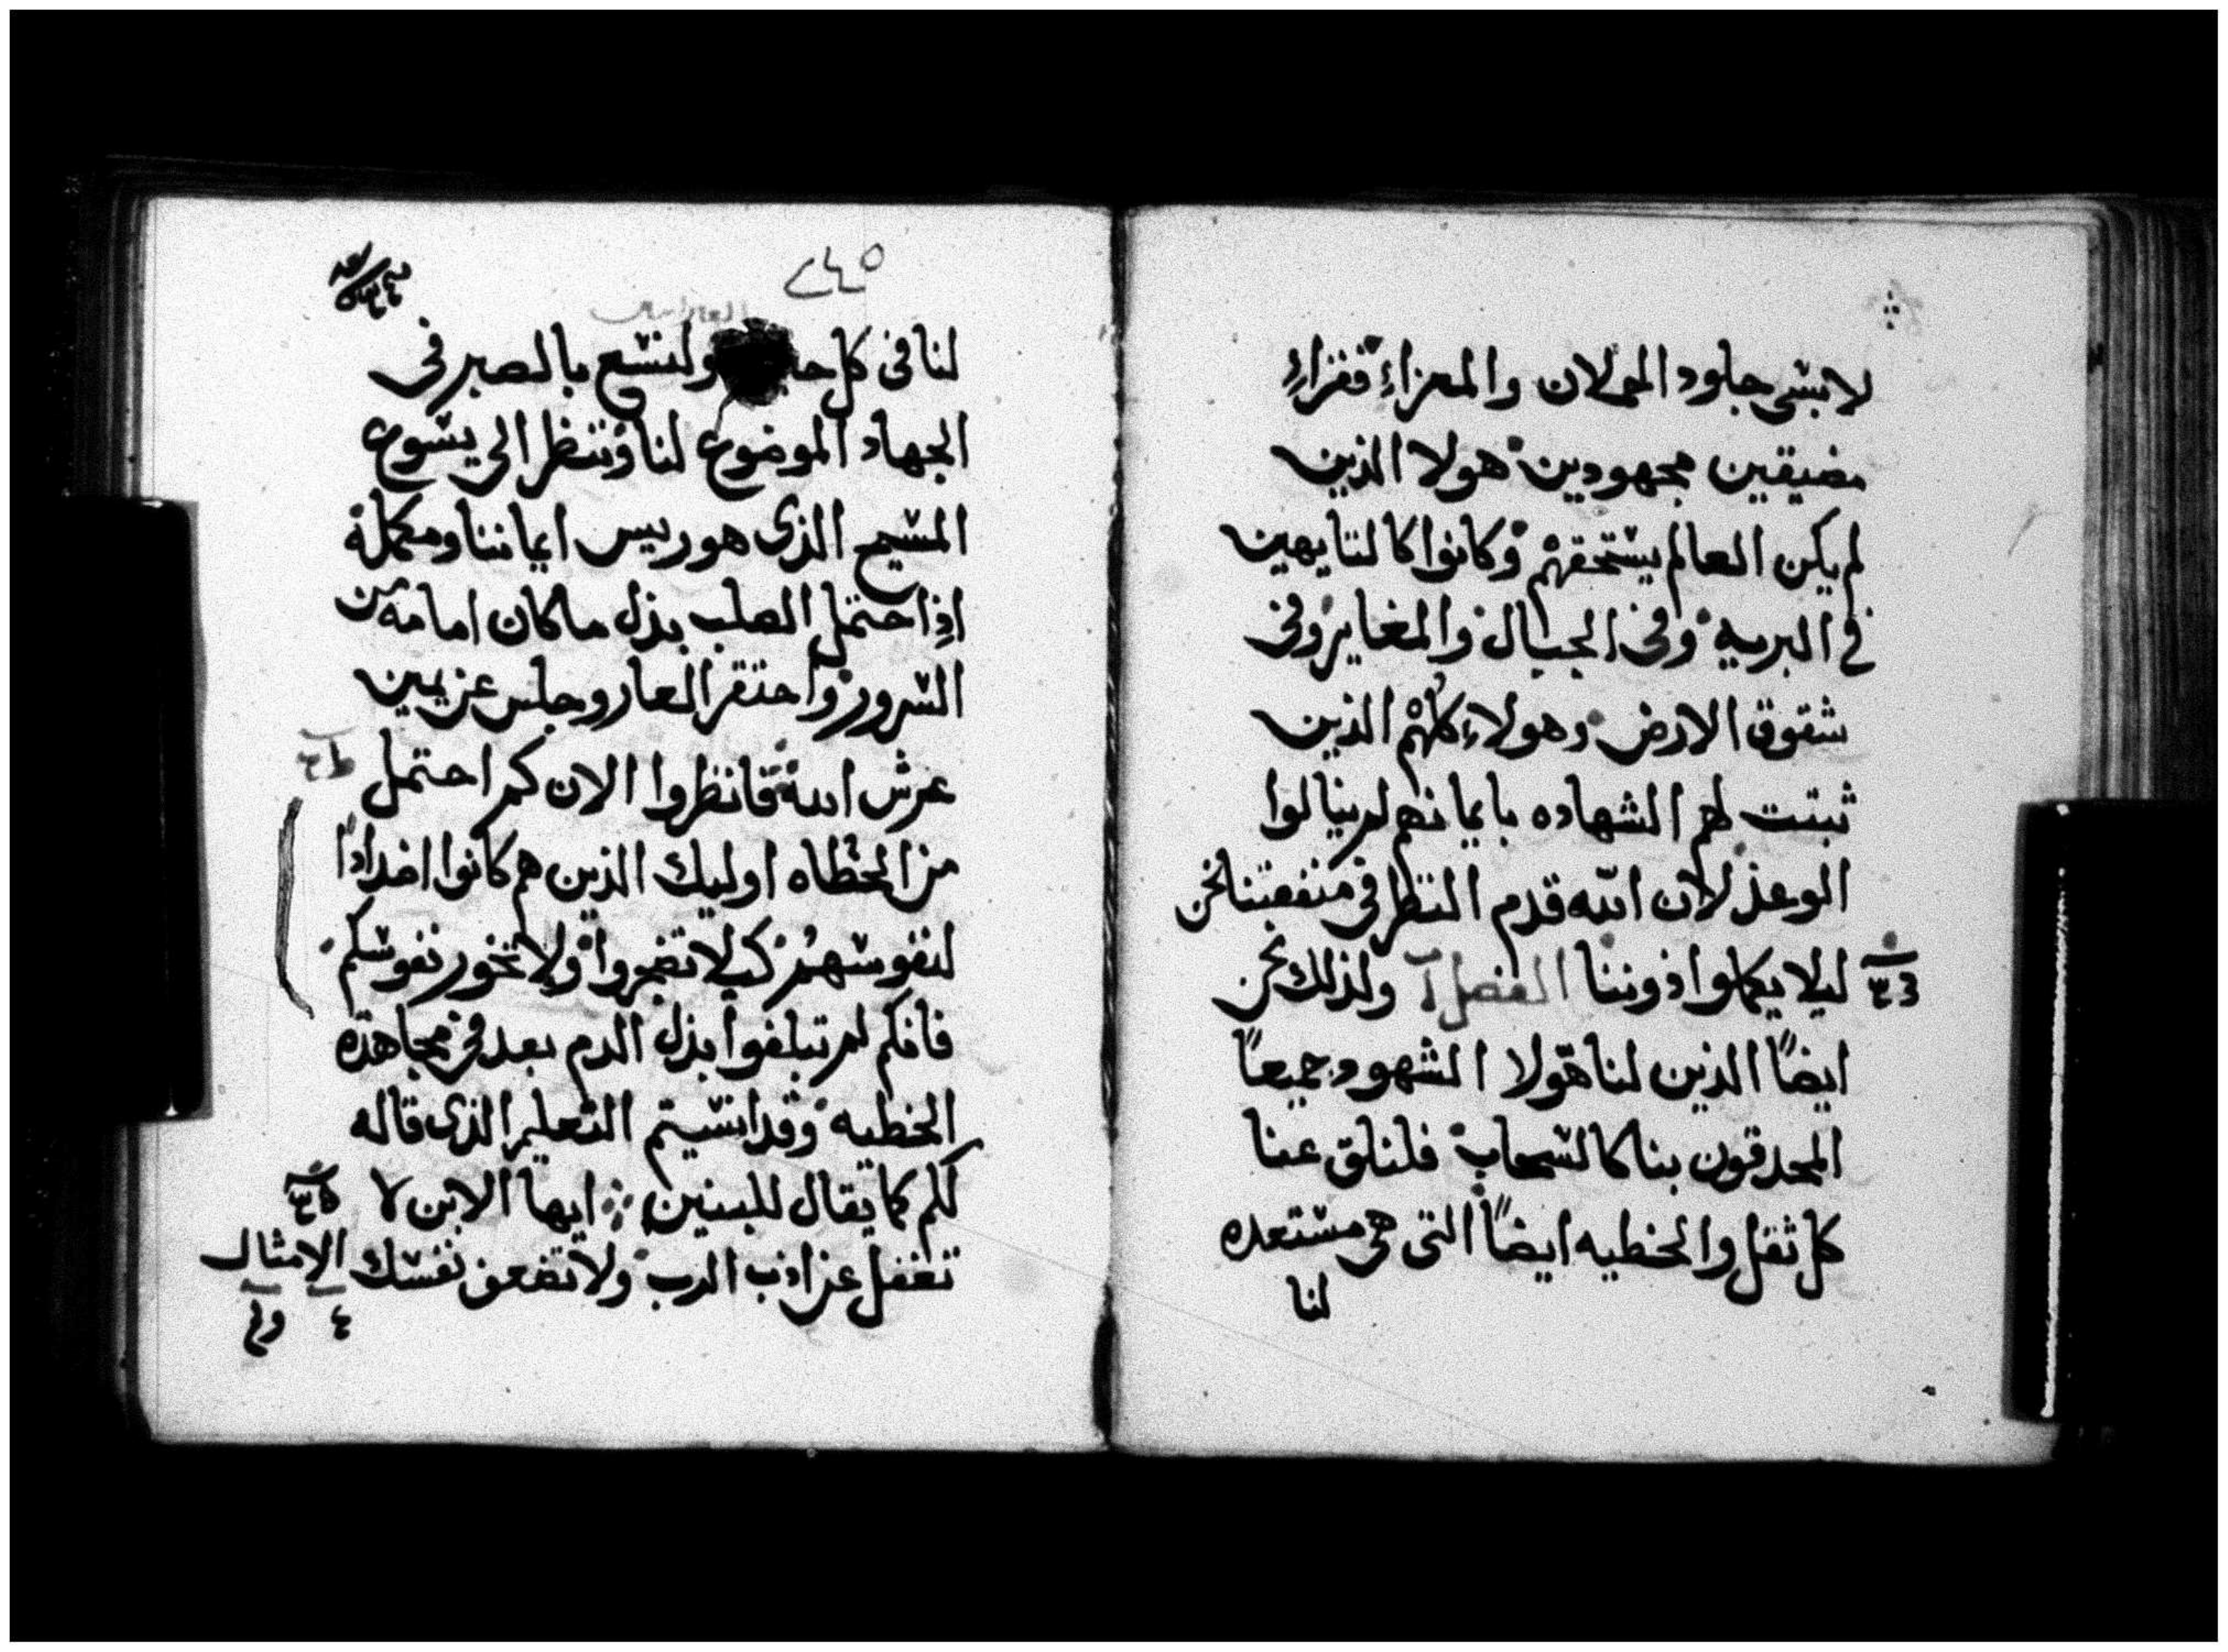 لابسى جلود الحولان والمعزاءِ فقراءِ
مضيقين مجهودين هولا الذين
لم يكن العالم يستحقهم وكانوا كالتايهين
في البريه وفى الجبال والمغاير وفى
شقوق الارض وهولاء كلهم الذين
ثبتت لهم الشهاده بايمانهم لم ينالوا
الوعد لان الله قدم النظر في منفعتنا نحن
ليلا يكملوا دوننا الفصل ولذلك نحن
ايضاً الذين لنا هولا الشهود جميعاً
المحدقون بنا كالسحاب فلنلق عنا
كل ثقل والخطيه ايضاً التى هى مستعده
لنا
٢٤٥
لنا فى كل ولنسع بالصبر فى
الجهاد الموضوع لنا وننظر الى يسوع
المسيح الذى هو ريس ايماننا ومكمله
اذ احتمل الصلب بدل ما كان امامه من
السرور واحتقر العار وجلس عن يمين
عرش الله فانظروا الان كم احتمل
من الخطاه اوليك الذين هم كانوا اضداداً
لنفوسهم كيلا تضجروا ولا تخور نفوسكم
فانكم لم تبلغوا بذل الدم بعد فى مجاهدة
الخطيه وقد انسيتم التعليم الذى قاله
لكم كما يقال للبنين ايها الابن لا
تغفل عن ادب الرب ولا تضعف نفسك
الامثال